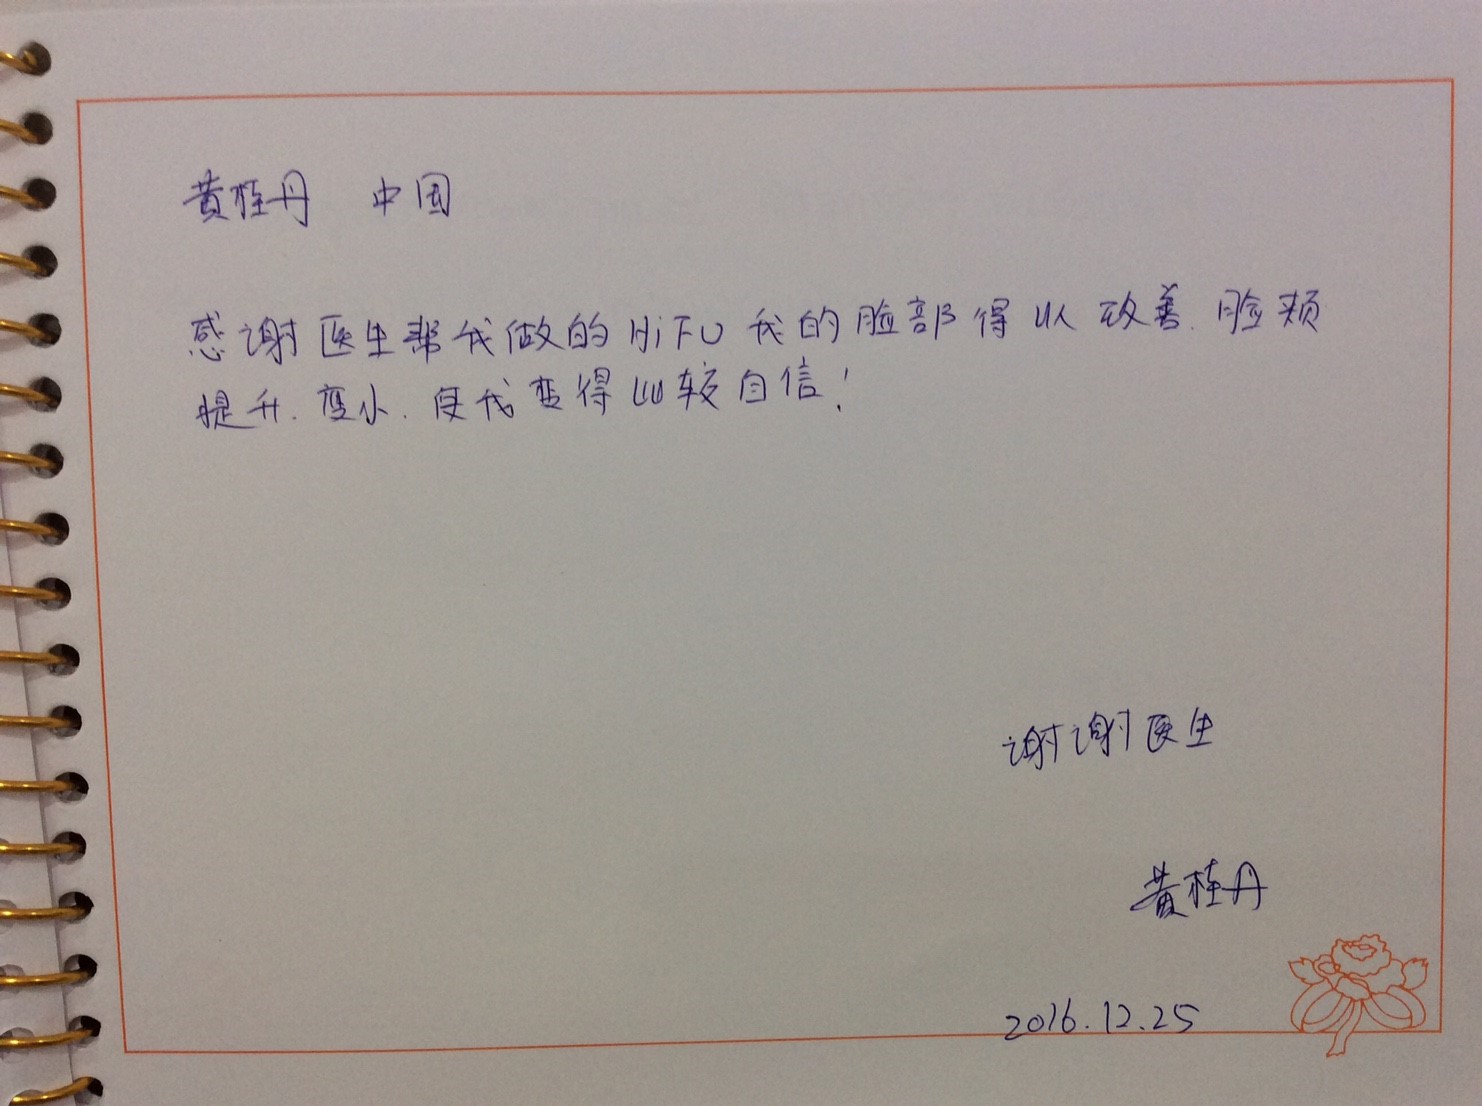 黄桂丹 中国
感谢医生帮我做的HiFU我的脸部得以改善.脸颊
提升.变小.使我变得比较自信!
谢谢医生
黄桂丹
2016.12.25